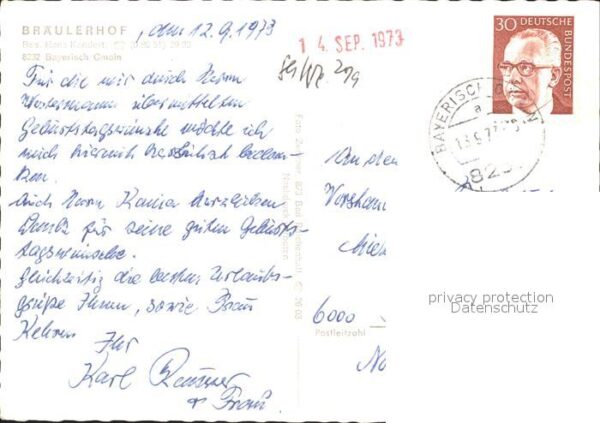 BRÄULERHOF, den 12.9.1973
Bes. Hans Kendlert
8232 Bayerisch Gmain
14. SEP. 1973
30 DEUTSCHE BUNDESPOST
BAYERISCH GMAIN
a
13.9.73
823
Für die mir durch Herrn
Westermann übermittelten
Geburtstagswünsche möchte ich
mich hiermit herzlichst bedan-
ken.
Auch Herrn Kania herzlichen
Dank für seine guten Geburts-
tagswünsche.
Gleichzeitig die besten Urlaubs-
grüße Ihnen, sowie Frau
Kehren
Ihr
Karl
+ Frau
Foto 823 Bad Reichenhall
Nachdruck verboten
An den
Vorstan
Mie
6000
Postleitzahl
No
privacy protection
Datenschutz